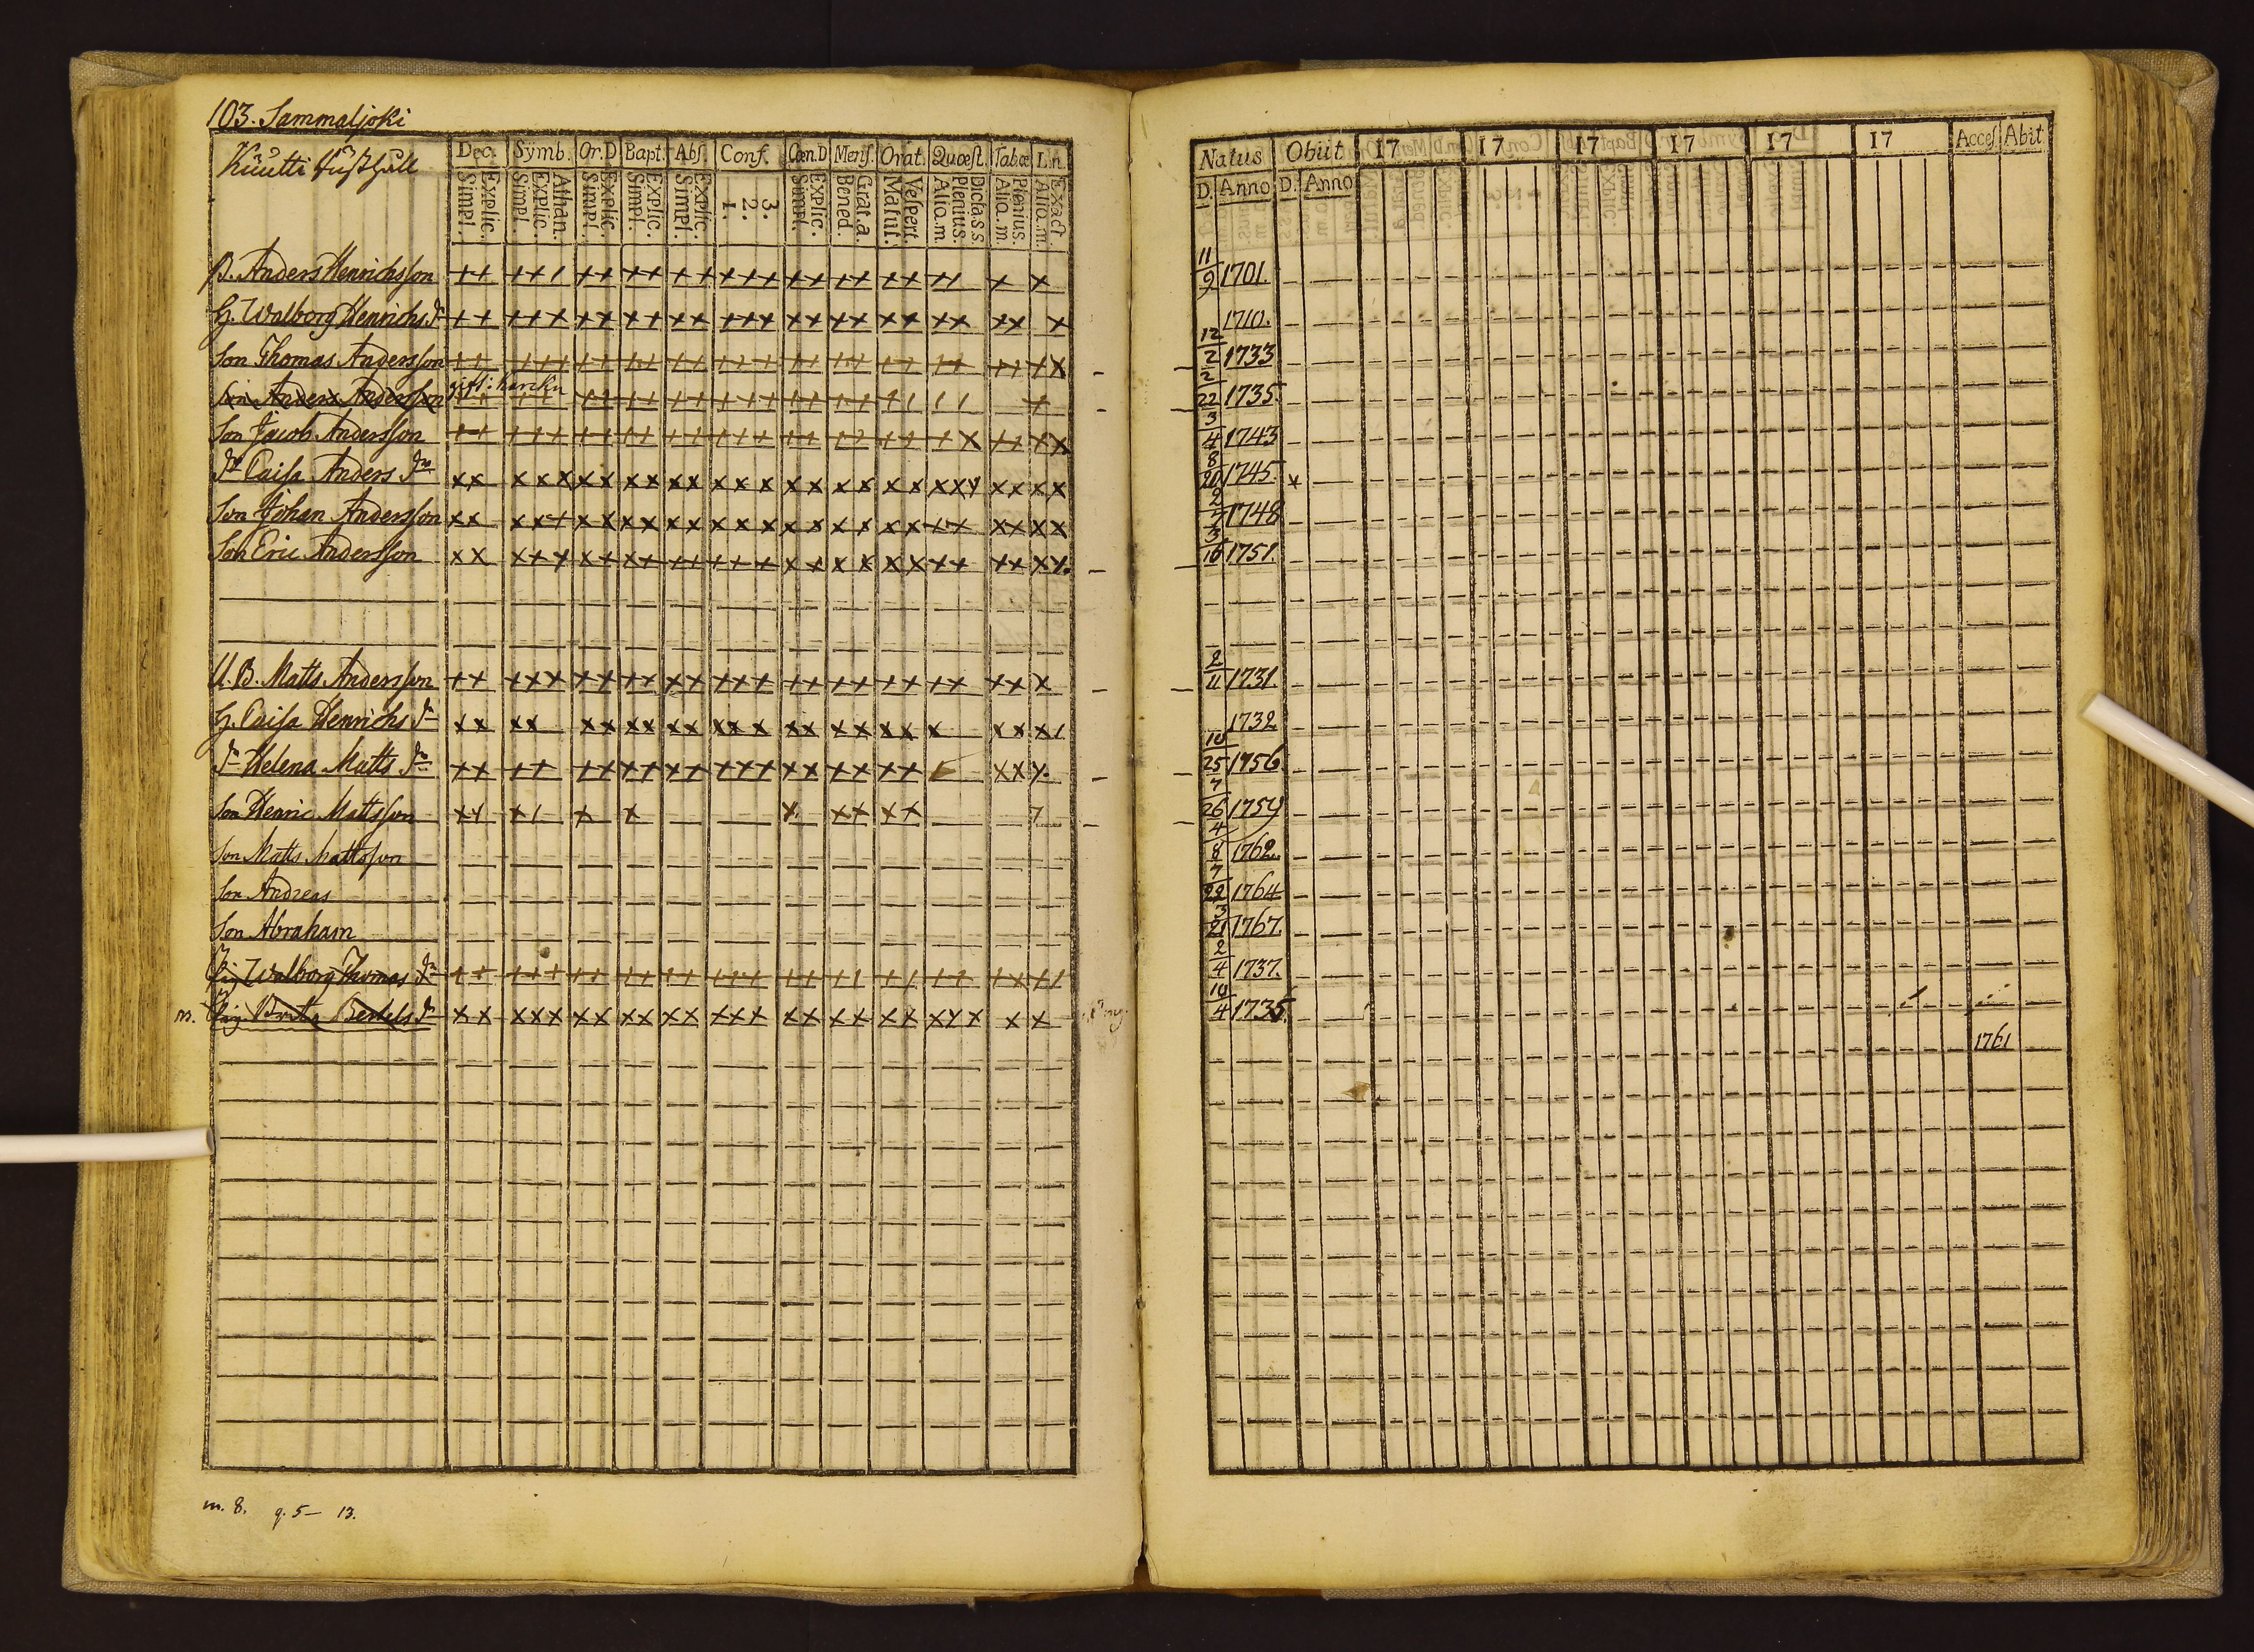 103. Sammaljoki
Kuutti
Dec. Symb. Or.D Bapt. Abs. Conf. Cœn.D Mens. Orat. Quæst. Tab.œ L.n.
Explic. Simpl. Athan. Explic. Simpl. Explic. Simpl. Explic. Simpl. Explic. Simpl. 3. 2. 1. Explic. Simpl. Grat.a. Bened. Vespert. Matut. Dicta.s.s. Plenius. Aliq.m. Plenius. Aliq.m. Exact. Aliq.m.
B. Anders Henrichsson
H. Walborg Henrichs Dr
Son Thomas Andersson
gift:
Son Anders Andersson
Son Jacob Andersson
Dr Caisa Anders Dr
Son Johan Andersson
Son Eric Andersson
U. B. Matts Andersson
H. Caisa Henrichs Dr
Dr Helena Matts Dr
Son Henric Mattsson
Son Matts Mattsson
Son Andreas
Son Abraham
Pig Walborg Thomas Dr
m. Pig Brita Bertels Dr
m. 8. q. 5– 13.
Natus Obiit 17 17 17 17 17 17 Acces Abit
D. Anno D. Anno
11/9 1701.
1710.
12/2 1733
2/22 1735.
3/4 1743
8/20 1745.
2/3 1748
3/16 1751.
2/11 1731.
1732
10/25 1756
7/26 1759
4/8 1762.
7/22 1764
3/21 1767.
2/4 1737.
10/4 1735.
1761